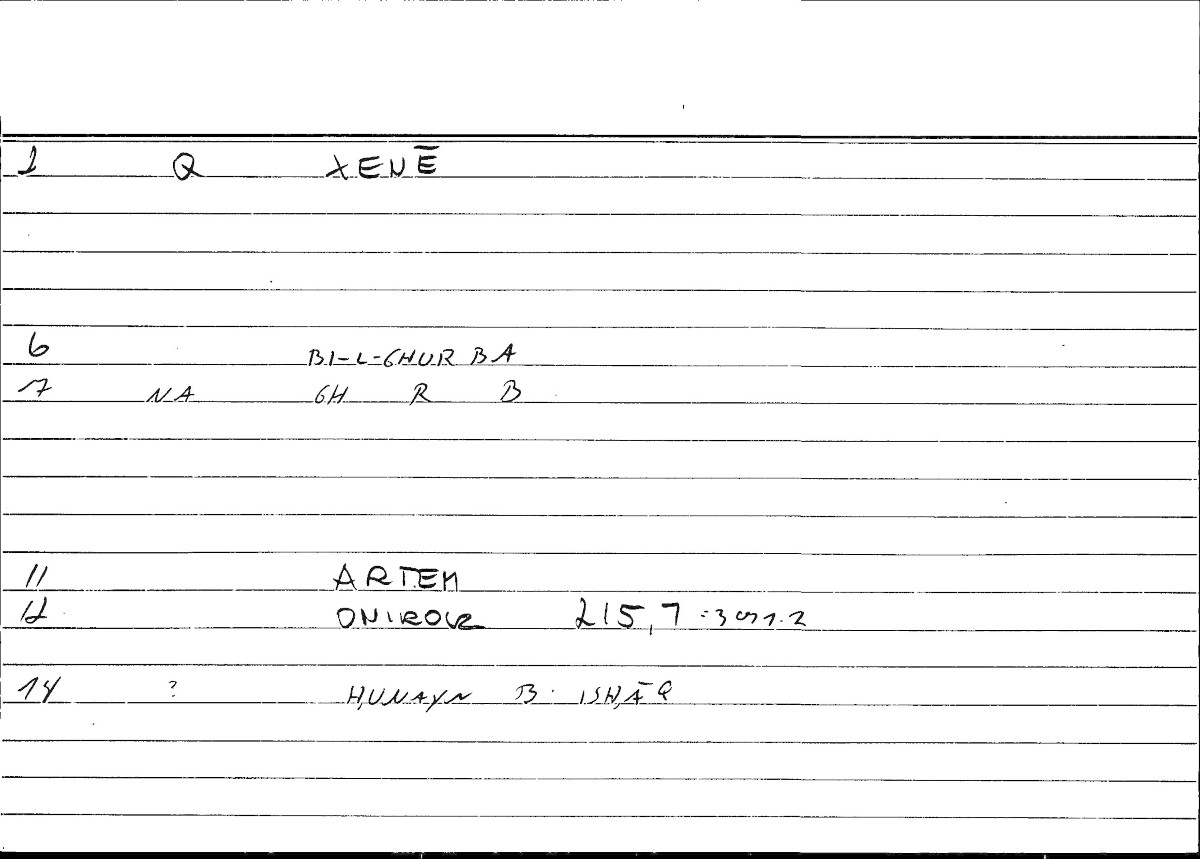 1 Q XENĒ
6 BI-L-GHURBA
7 NA GH R B
11 ARTEM
12 ONIROCR 215,7 = 391.2
14 ? ḤUNAYN B. ISḤĀQ